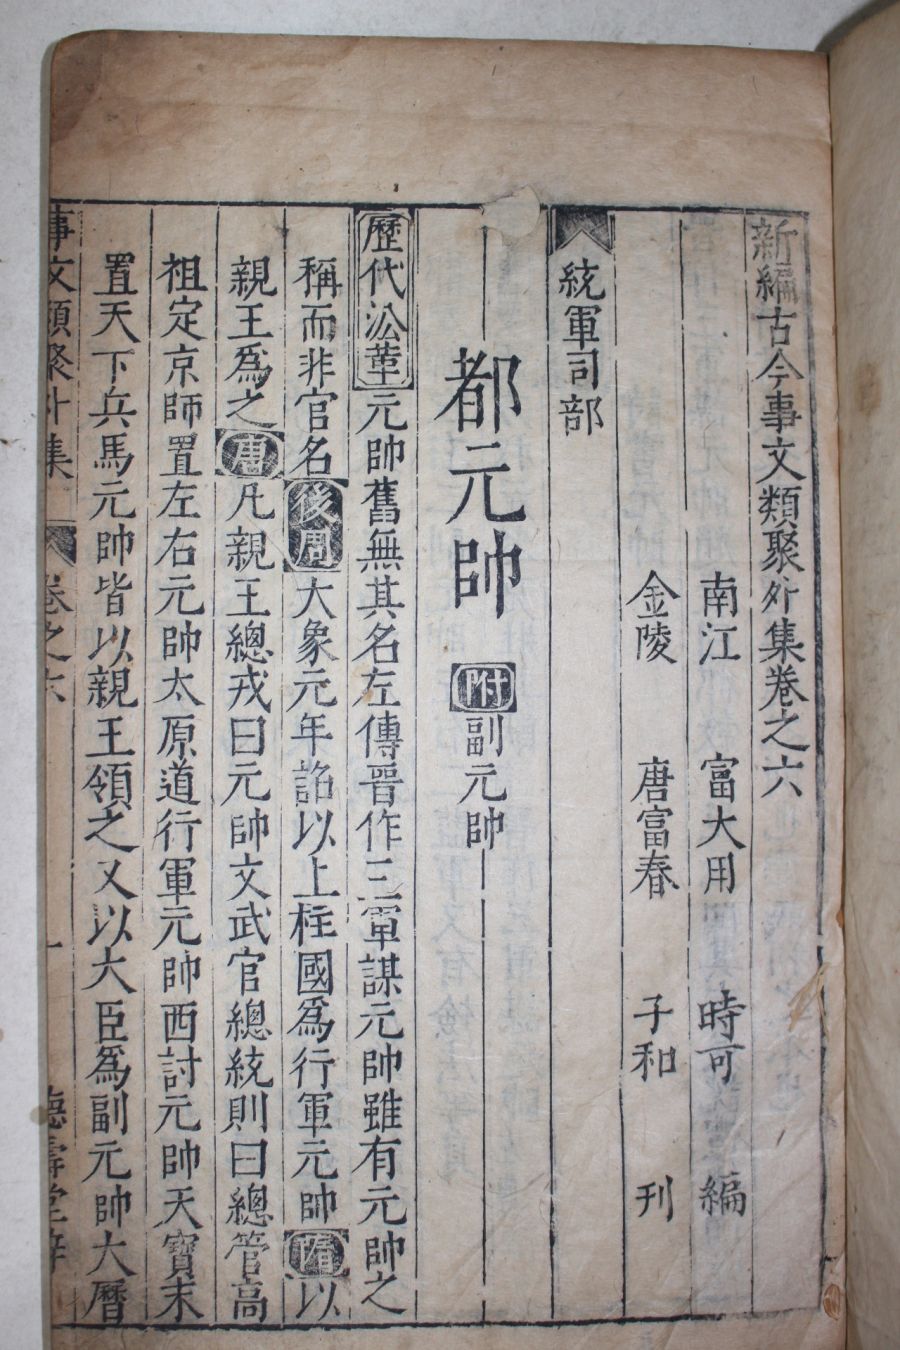 新編古今事文類聚外集卷之六
南江 富大用 時可 編
金陵 唐富春 子和 刊
統軍司部
都元帥 附副元帥
歷代沿革元帥舊無其名左傳晉作三軍謀元帥雖有元帥之
稱而非官名後周大象元年詔以上柱國爲行軍元帥隋以
親王爲之唐凡親王總戎曰元帥文武官總統則曰總管高
祖定京師置左右元帥太原道行軍元帥西討元帥天寶末
置天下兵馬元帥皆以親王領之又以大臣爲副元帥大曆
事文類聚外集 卷之六 一 德壽堂梓